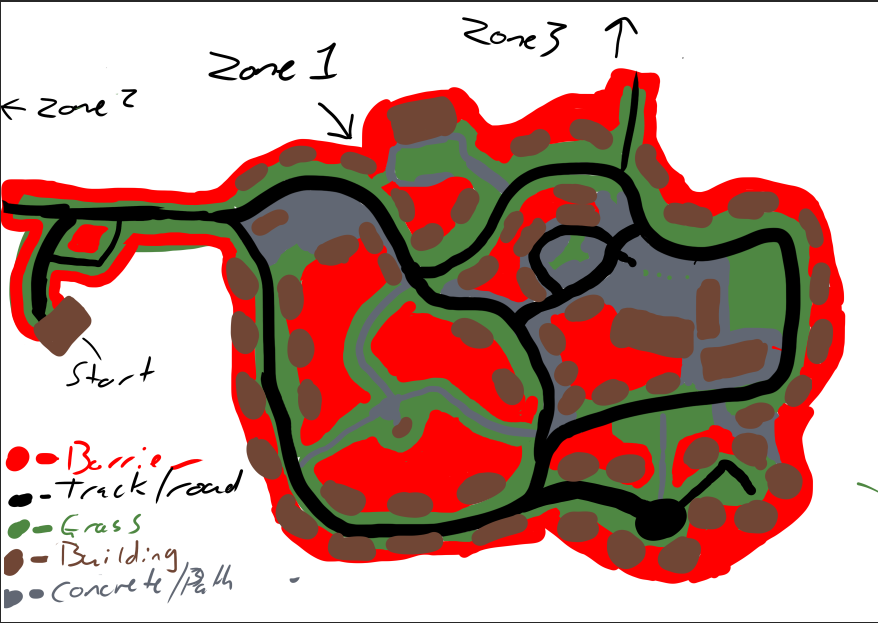 Zone 3
Zone 1
← Zone 2
Start
- Barrier
- Track/road
- Grass
- Building
- Concrete/Path